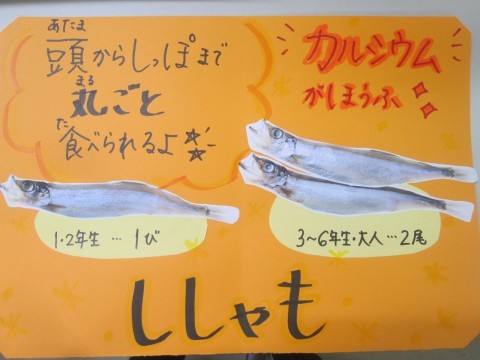 あたま
頭からしっぽまで
まる
丸ごと
た
食べられるよ
カルシウム
がほうふ
1・2年生…1び
3〜6年生・大人…2尾
ししゃも